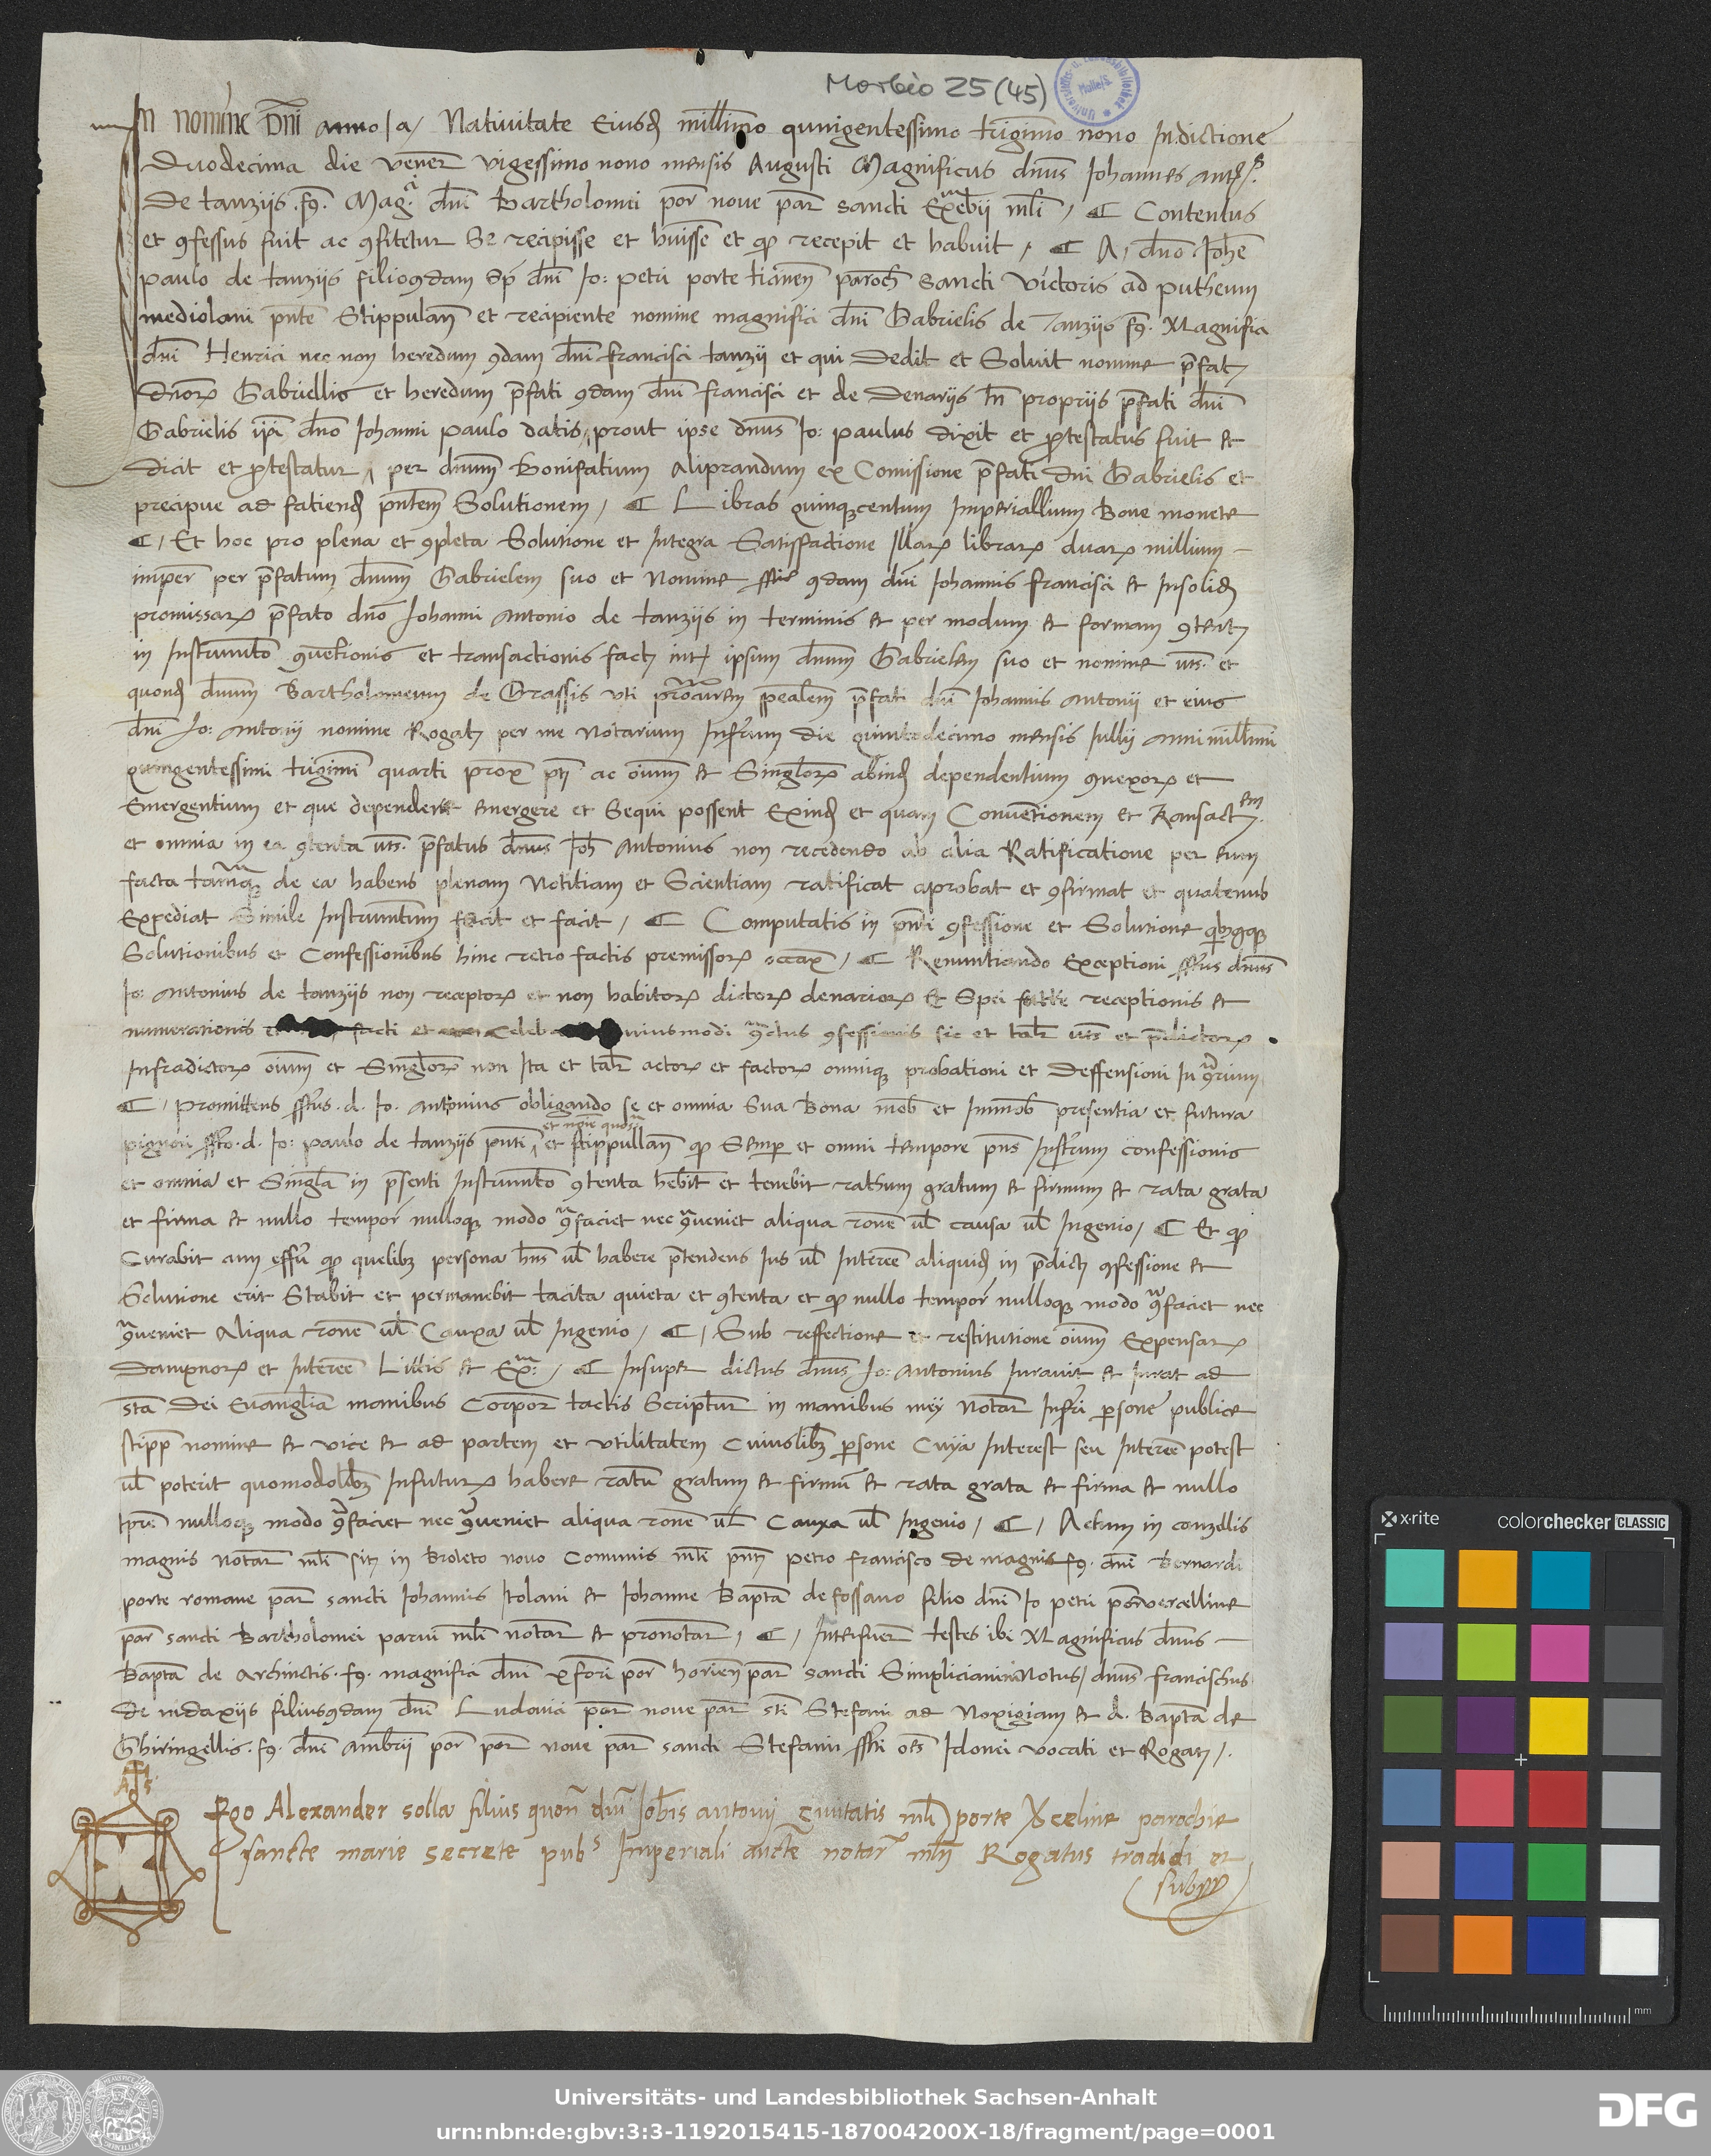 Morbio 25 (45)
In nomine Dni anno /a/ Nativitate Eiusd millimo quingentessimo trigimo nono Indictione
Duodecima die vener vigessimo nono mensis Augusti Magnificus dnus Iohannes ant
De tanziis .fq. Mag.ci dni Bartholomei por nove par sancti Exebii mli / ¶ Contentus
et 9fessus fuit ac 9fitetur Se recipisse et huisse et qp recepit et habuit / ¶ A / dno Iohe
paulo de tanziis filio 9dam sp dni Io: petri porte ticinen paroch sancti victoris ad putheum
mediolani pnte Stippulan et recipiente nomine magnifici dni Gabrielis de Tanziis fq. Magnifici
dni Henrici nec non heredum 9dam dni francisci tanzii et qui Dedit et Soluit nomine pfat
dnor Gabriellis et heredum pfati 9dam dni francisci et de Denariis propriis pfati dni
Gabrielis ipi dno Iohanni paulo datis, prout ipse dnus Io: paulus dixit et ptestatus fuit et
dicit et ptestatur, per dnum Bonifatium Aliprandum ex Comissione pfati dni Gabrielis et
precipue ad fatiend pntem Solutionem / ¶ Libras quinqcentum Imperiallium Bone monete
¶ / Et hoc pro plena et 9pleta Solutione et Integra Satisfactione Illar librar duar millium –
imper per pfatum dnum Gabrielem suo et Nomine 9dam dni Iohannis francisci et Insolid
promissar pfato dno Iohanni Antonio de tanziis in terminis et per modum et formam 9tent
in Instrumto 9uetionis et transactionis fact int ipsum dnum Gabrielem suo et nomine uts. et
quond dnum Bartholomeum de Grassis uti procurem spealem pfati dni Iohannis Antonii et eius
dni Io: Antonii nomine Rogat per me Notarium Infrum die quintodecimo mensis Iullii anni millimi
quingentessimi trigimi quarti prox pti ac oium et Singlor abind dependentium 9nexor et
Emergentium et que dependere emergere et Sequi possent Exind et quam Conventionem et Transact.em
et omnia in ea 9tenta uts. pfatus dnus Ioh Antonius non recedendo ab alia Ratificatione per eum
facta tamq de ea habens plenam Notitiam et Scientiam ratificat aprobat et 9firmat et quatenus
Expediat Simile Instrumtum fecit et facit / ¶ Computatis in pnti 9fessione et Solutione
Solutionibus et Confessionibus hinc retro factis premissor occax / ¶ Renuntiando Exceptioni dnus
Io: Antonius de tanziis non receptor et non habitor dictor denarior et Spei future receptionis et
numerationis facti et celeb uiusmodi 9ctus 9fessionis sic et talr uts et pdictor
Infradictor oium et Singlor non Ita et talr actor et factor omniq probationi et Deffensioni In 9rium
¶ / Promittens .d. Io. Antonius obligando se et omnia Sua Bona mob et Immob presentia et futura
et noie quor
pignori .d. Io: paulo de tanziis pnti et stippullan qp Semp et omni tempore pns Instrum confessionis
et omnia et Singla in psenti Instrumto 9tenta hebit et tenebit rathum gratum et firmum et rata grata
et firma et nullo tempor nulloq modo 9faciet nec 9veniet aliqua rone ul causa ul Ingenio / ¶ Et qp
Curabit cum effu qp quelibz persona hns ul habere ptendens Ius ul Interee aliquid in pdict 9fessione et
Solutione erit Stabit et permanebit tacita quieta et 9tenta et qp nullo tempor nulloq modo 9faciet nec
9veniet Aliqua rone ul Cauxa ul Ingenio / ¶ / Sub reffectione et restitutione oium Expensar
Dampnor et Interee Littis et Ex. / ¶ Insuper dictus dnus Io: Antonius Iuravit et Iurat ad
sta Dei Evanglia manibus Corpor tactis Scriptur in manibus mey Notar Infri psone publice
stipp nomine et vice et ad partem et utilitatem Cuiuslibz psone Cuya Interest seu Interee potest
ul poterit quomodolibz Infutur habere ratu gratum et firmu et rata grata et firma et nullo
tpre nulloq modo 9faciet nec 9veniet aliqua rone ul Cauxa ul Ingenio / ¶ / Actum in conzellis
magnis Notar mli sit in Broleto novo Comunis mli pnt petro francisco de magnis fq. dni Bernardi
porte romane par sancti Iohannis Itolani et Iohanne Bapta de fossano filio dni Io petri por vercelline
par sancti Bartholomei parui mli notar et pronotar / ¶ / Interfuer testes ibi Magnificus dnus –
Bapta de Archintis .fq. magnifici dni xfori por horien par sancti Simpliciani Notus / dnus francischus
De medaxiis filius 9dam dni Ludovici por nove par sti Stefani ad Noxigiam et d. Bapta de
Ghiringellis .fq. dni Ambrii por nove par sancti Stefani oes Idonei vocati et Rogat /.
Ego Alexander solla filius quon dni Iohis antonii Civitatis mli porte Vceline parochie
sancte marie secrete pubs Imperiali aucte notar mli Rogatus tradidi et
subss
x-rite colorchecker CLASSIC
mm
Universitäts- und Landesbibliothek Sachsen-Anhalt
urn:nbn:de:gbv:3:3-1192015415-187004200X-18/fragment/page=0001
DFG